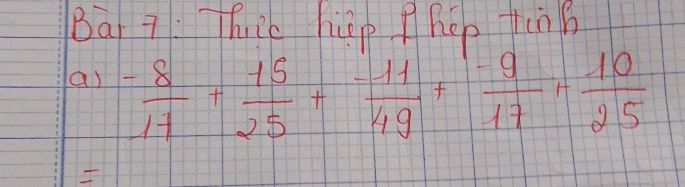 Bài 7: Thực hiệp phép tính
a) -8/17 + 15/25 + -11/49 + -9/17 + 10/25
=